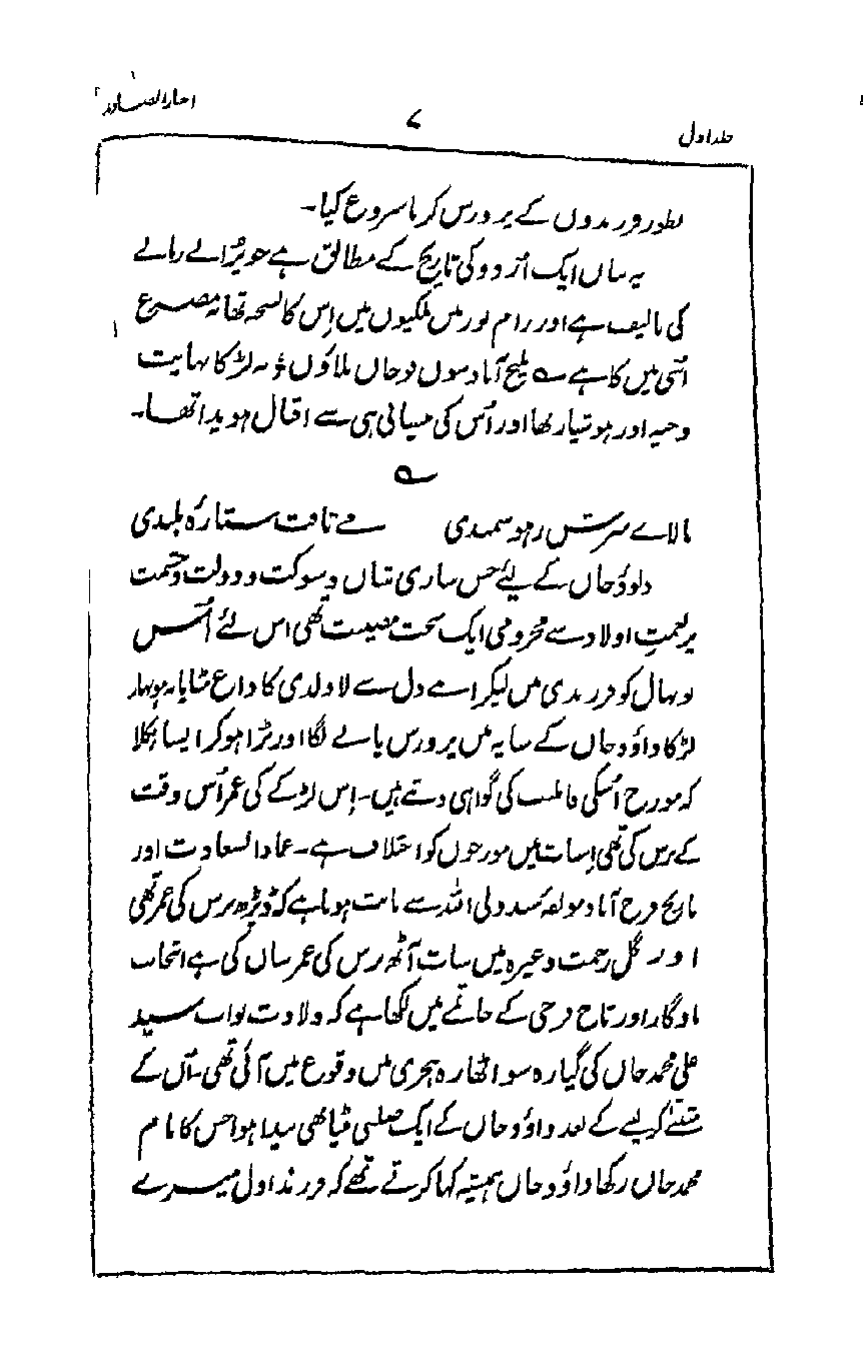 اخبار الصنادید
۷
جلد اول
بطور فرزندوں کے پرورش کرنا شروع کیا۔
یہ بیان ایک اُردو کی تاریخ کے مطابق ہے جو پُرانے زمانے
کی تالیف ہے اور رام پور میں ملکیوں میں اِس کا نسخہ تھا یہ مصرع
اُسی میں کا ہے ؎ ملیح آباد سوں نو خاں بلاؤں ؤ یہ لڑکا نہایت
وجیہ اور ہوشیار تھا اور اُس کی پیشانی ہی سے اقبال ہویدا تھا۔
؎
بالاے سرش ز ہوشمندی مے تافت ستارۂ بلندی
داؤد خاں کے لیئے جس ساری شان و شوکت و دولت و حشمت
پر نعمتِ اولاد سے محرومی ایک سخت مصیبت تھی اس لئے اُس
نونہال کو فرزندی میں لیکر اپنے دل سے لاولدی کا داغ مٹایا یہ ہونہار
لڑکا داؤد خاں کے سایہ میں پرورش پانے لگا اور بڑا ہو کر ایسا نکلا
کہ مورخ اُسکی قابلیت کی گواہی دیتے ہیں۔ اِس لڑکے کی عمر اُس وقت
کے برس کی تھی اِسبات میں مورخوں کو اختلاف ہے۔ عماد السعادت اور
تاریخ فرخ آباد مولفہ سید ولی اللہ سے ثابت ہوتا ہے کہ ڈیڑھ برس کی عمر تھی
اور گل رحمت وغیرہ میں سات آٹھ برس کی عمر بیان کی ہے انتخاب
یادگار اور تاج فرخی کے حاشئے میں لکھا ہے کہ ولادت نواب سید
علی محمد خاں کی گیارہ سو اٹھارہ ہجری میں وقوع میں آئی تھی۔ اُن کے
متبنّے کر لینے کے بعد داؤد خاں کے ایک صلبی بیٹا بھی پیدا ہوا جس کا نام
محمد خاں رکھا داؤد خاں ہمیشہ کہا کرتے تھے کہ فرزند اول میرے